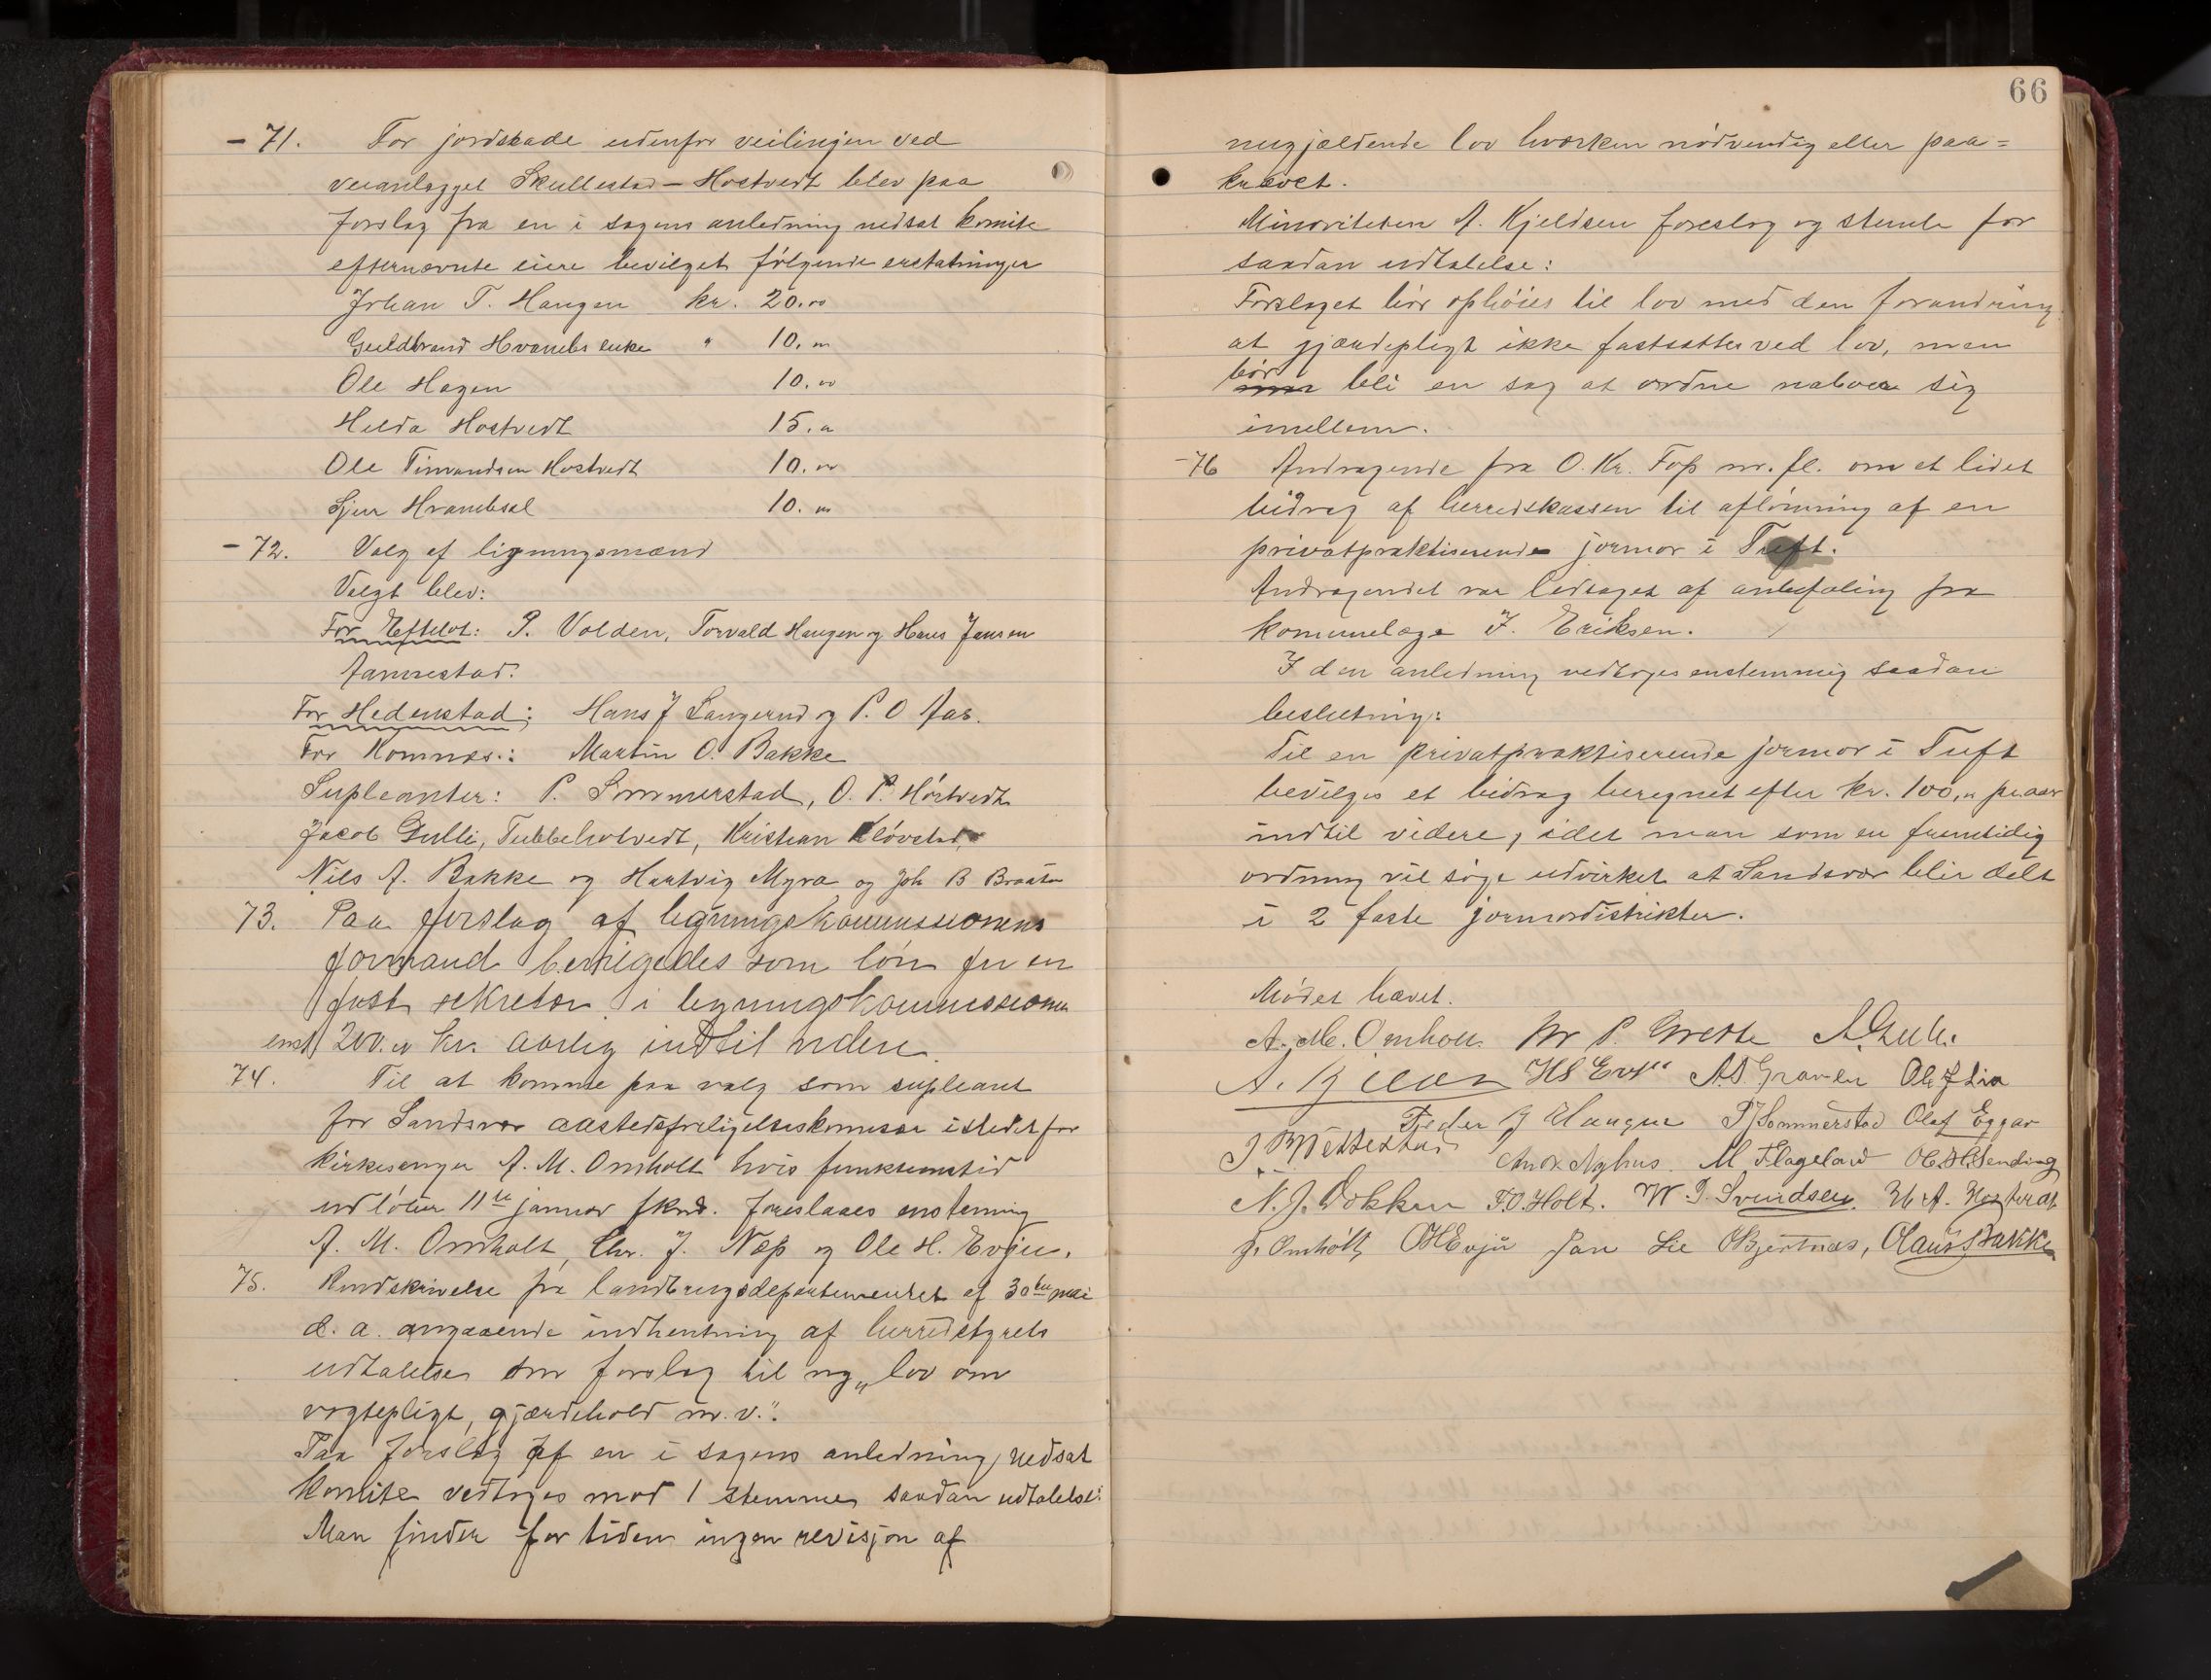 - 71. For jordskade udenfor veilinjen ved
veianlægget Skullestad - Hostvedt blev paa
forslag fra en i sagens anledning nedsat komite
efternævnte eiere bevilget følgende erstatninger
Johan T. Haugen kr. 20.00
Guldbrand Hvambs enke " 10.00
Ole Hagen 10.00
Helda Hostvedt 15.00
Ole Timandsen Hostvedt 10.00
Sjur Hvambsal 10.00
- 72. Valg af ligningsmænd
Valgt blev:
For Efteløt: P. Volden, Torvald Haugen og Hans Jansen
Aannestad.
For Hedenstad: Hans J Langerud og P. O Aas.
For Komnæs.: Martin O. Bakke
Supleanter: P. Sommerstad, O. P. Hostvedt
Jacob Gulli, Tubbeholvedt, Kristian Kløvstad
Nils A. Bakke og Hartvig Myra og Joh B Braaten
73. Paa forslag af ligningskommissionens
formand bevilgedes som løn for en
fast sekretær i ligningskommissionen
enst 200.00 kr. aarlig indtil videre.
74. Til at komme paa valg som supleant
for Sandsvær aastedsforligelseskommission istedet for
kirkesanger A. M. Omholt hvis funktionstid
udløber 11te januar fkmd. foreslaaes enstemmig
A. M. Omholt, Chr. J. Næp og Ole H. Evju.
75. Rundskrivelse fra landbrugsdepartementet af 30te mai
d. a. angaaende indhentning af herredstyrets
udtalelse om forslag til ny "lov om
vogtepligt, gjærdehold m. v.".
Paa forslag af en i sagens anledning nedsat
komite vedtoges mod 1 stemme saadan udtalelse:
Man finder for tiden ingen revisjon af
66
nugjældende lov hverken nødvendig eller paa=
krævet.
Minoriteten A. Kjeldsen foreslog og stemte for
saadan udtalelse:
Forslaget bør ophøies til lov med den forandring
at gjærdepligt ikke fastsættes ved lov, men
bør bli en sag at ordne naboer sig
imellem.
- 76 Andragende fra O. Kr. Fos m. fl. om et lidet
bidrag af herredskassen til aflønning af en
privatpraktiserende jormor i Tuft.
Andragendet var ledsaget af anbefaling fra
kommunelæge J. Eriksen.
I den anledning vedtoges enstemmig saadan
beslutning:
Til en privatpraktiserende jormor i Tuft
bevilges et bidrag beregnet efter kr. 100,00 pr. aar
indtil videre, idet man som en fremtidig
ordning vil søge udvirket at Sandsvær blir delt
i 2 faste jormordistrikter.
Mødet hævet.
A. M. Omholt. Kr P. Grette A. Gulli
HS Evju A. S. Graven Ole J Lia
Peder J Haugen P J Sommerstad Olaf Eggar
Andr. Myhus. M. Flageland Ole H. Sending
N. J. Dokken F. O. Holt. W. P. Svendsen.
J. Omholt OHEvju Jan Lie O Bjertnæs, Olaus Bakke